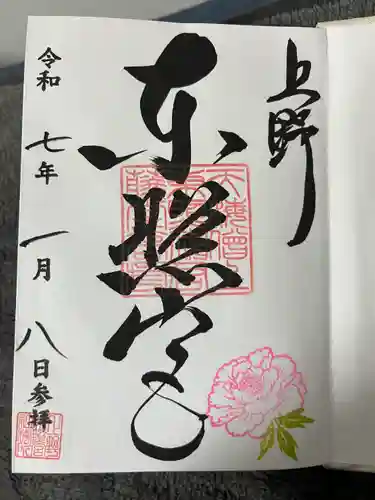 上野
東照宮
令和七年一月八日参拝